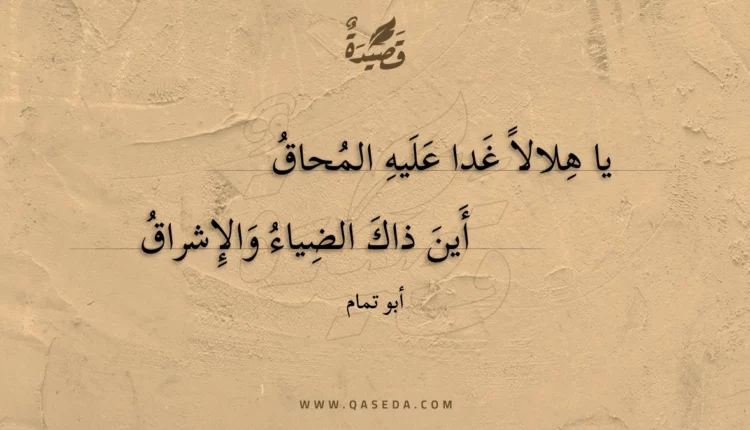 قَصِيدَةٌ
يا هِلالاً غَدا عَلَيهِ المُحاقُ
أَينَ ذاكَ الضِياءُ وَالإِشراقُ
أبو تمام
WWW.QASEDA.COM